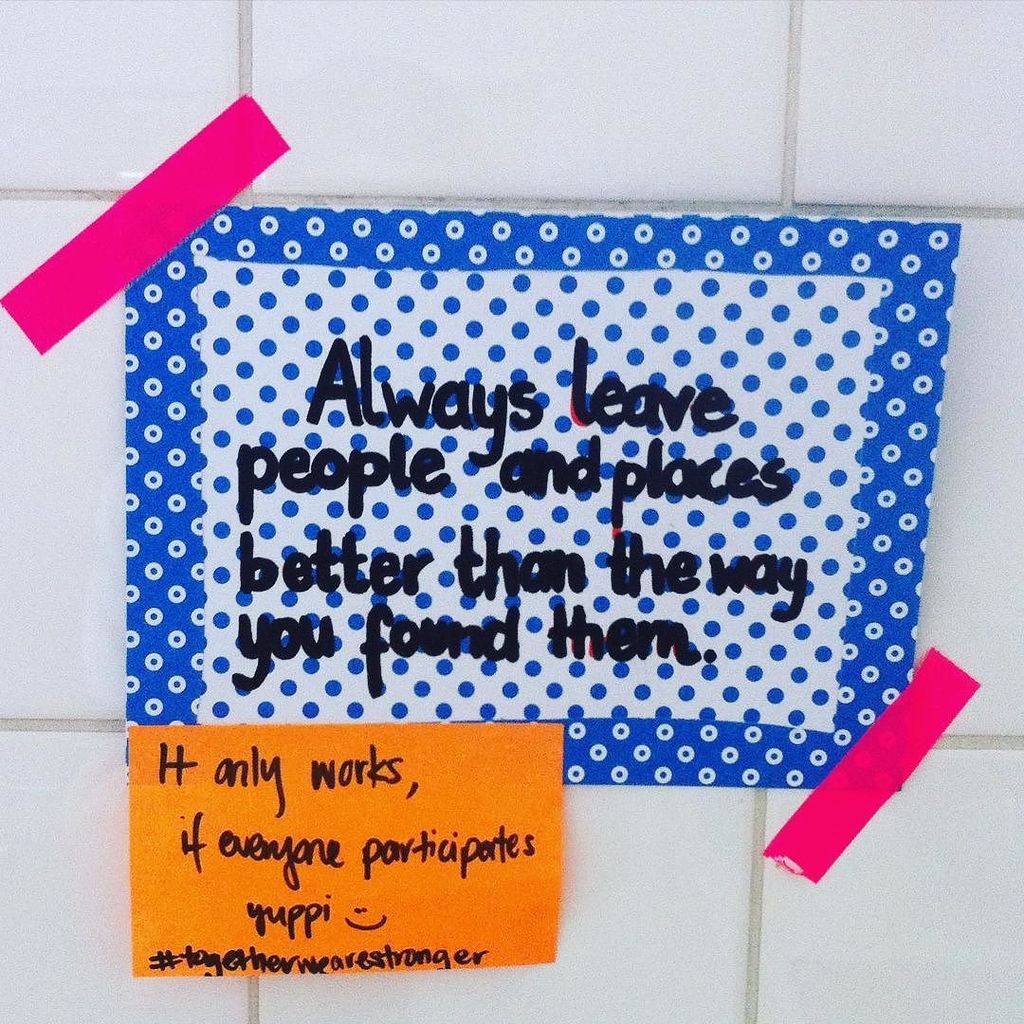 Always leave
people and places
better than the way
you found them.
It only works,
if everyone participates
yuppi :)
#togetherwearestronger